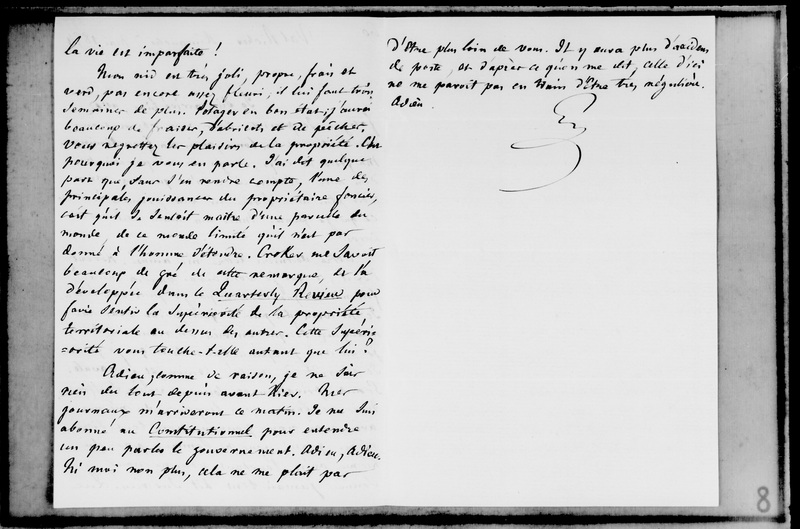 la vie est imparfaite !
Mon nid est très joli, propre, frais et
verd, pas encore assez fleuri, il lui faut trois
semaines de plus. Potager en bon état ; j'aurai
beaucoup de fraises, d'abricots et de pêches,
vous regrettez les plaisirs de la propriété. C'est
pourquoi je vous en parle. J'ai dit quelque
part que, sans s'en rendre compte, l'une des
principales jouissances du propriétaire foncier,
c'est qu'il se sentoit maître d'une parcelle du
monde, de ce monde limité qu'il n'est pas
donné à l'homme d'étendre. Croker me savoit
beaucoup de gré de cette remarque, et l'a
développée dans le Quarterly Review pour
faire sentir la supériorité de la propriété
territoriale au dessus des autres. Cette supéri-
=orité vous touche-t-elle autant que lui ?
Adieu, comme de raison, je ne sais
rien du tout depuis avant hier. Mes
journaux m'arriveront ce matin. Je me suis
abonné au Constitutionnel pour entendre
un peu parler le gouvernement. Adieu, Adieu.
Ni moi non plus, cela ne me plait pas
d'être plus loin de vous. Il y aura plus d'accidens
de poste, et d'après ce qu'on me dit, celle d'ici
ne me paroit pas en train d'être très régulière.
Adieu.
8